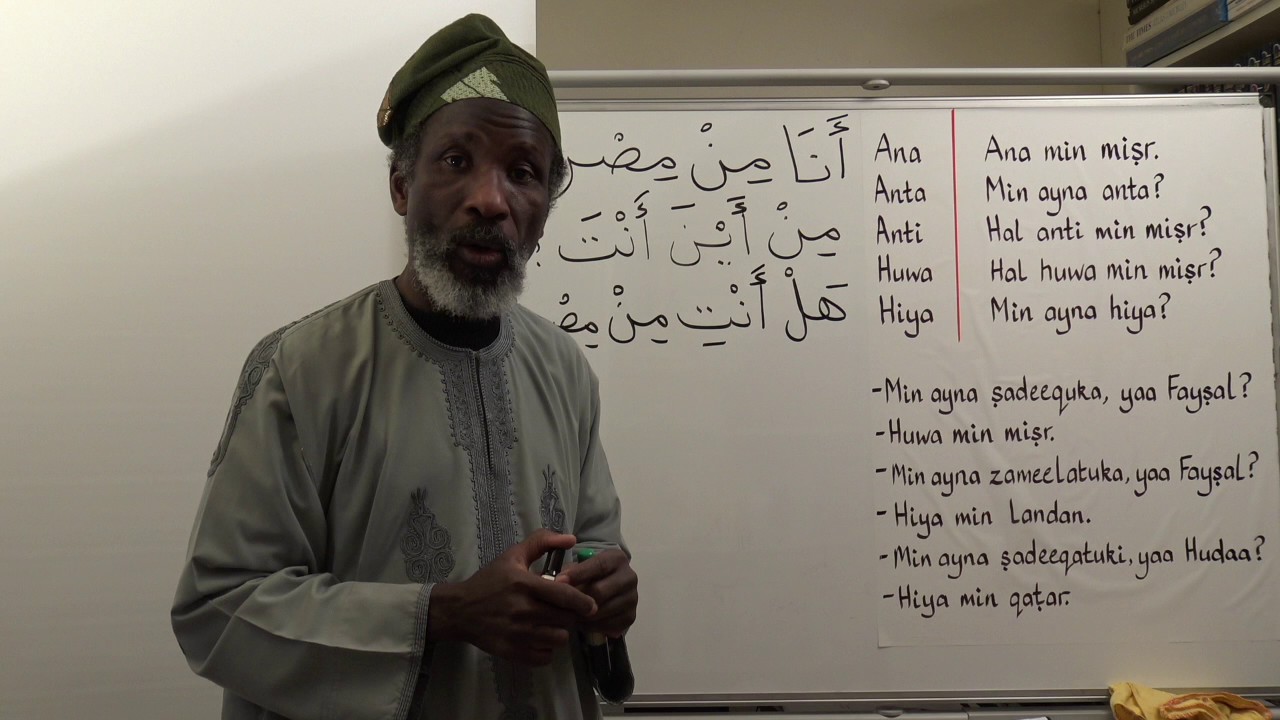 أَنَا مِنْ مِصْر
مِنْ أَيْنَ أَنْتَ
هَلْ أَنْتِ مِنْ
Ana
Anta
Anti
Huwa
Hiya
Ana min miṣr.
Min ayna anta?
Hal anti min miṣr?
Hal huwa min miṣr?
Min ayna hiya?
-Min ayna ṣadeequka, yaa Fayṣal?
-Huwa min miṣr.
-Min ayna zameelatuka, yaa Fayṣal?
-Hiya min Landan.
-Min ayna ṣadeeqatuki, yaa Hudaa?
-Hiya min qaṭar.
THE TIMES